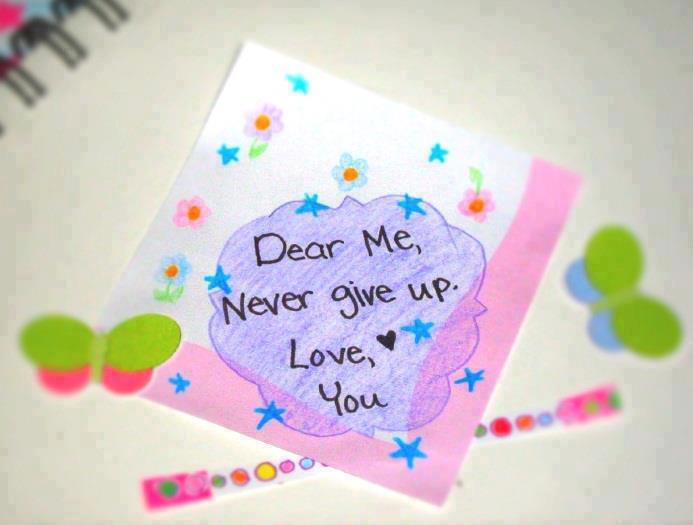 Dear Me,
Never give up.
Love, ♥
You